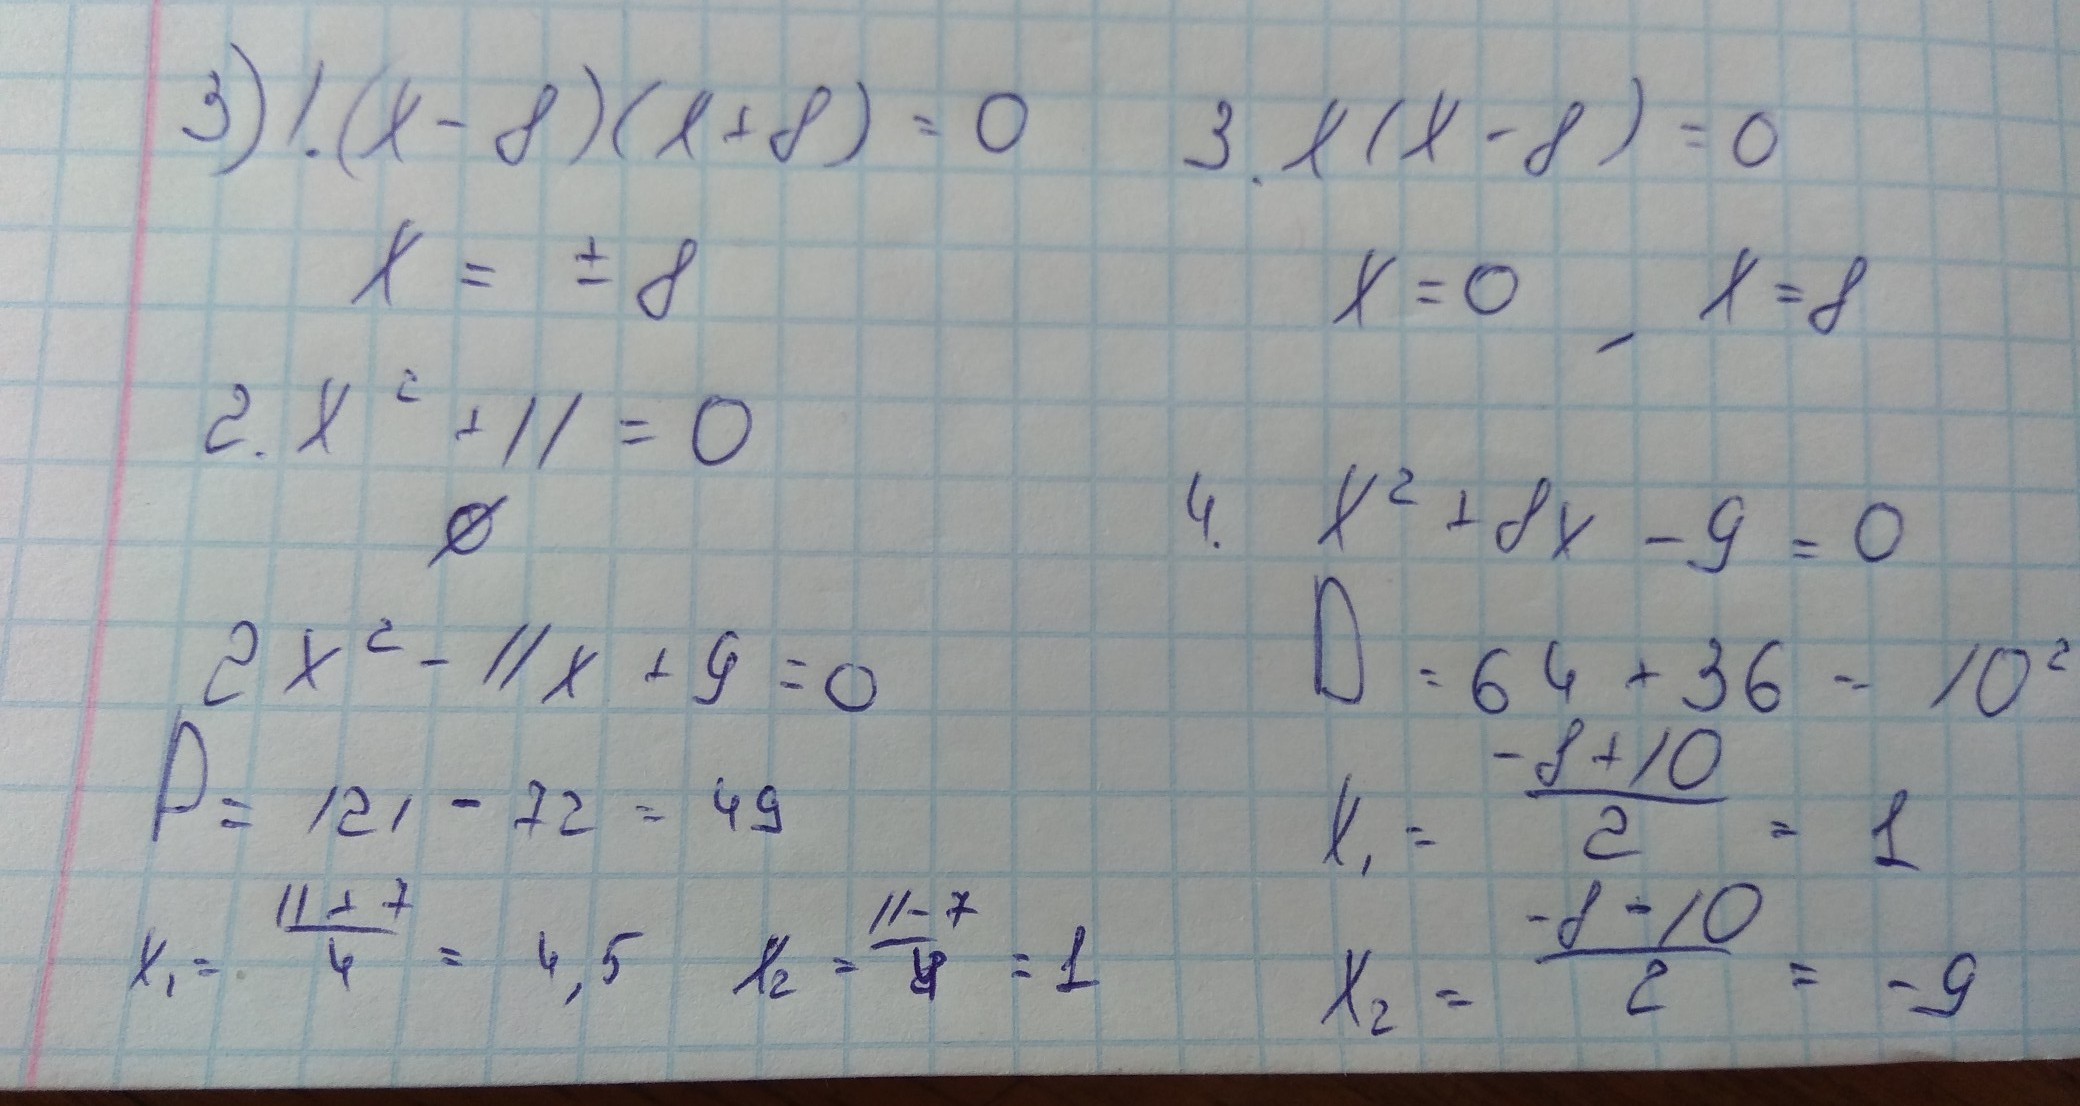 3) 1. (x - 8)(x + 8) = 0
x = ± 8
2. x² + 11 = 0
∅
2x² - 11x + 9 = 0
D = 121 - 72 = 49
x₁ = (11 + 7)/4 = 4,5 x₂ = (11 - 7)/4 = 1
3. x(x - 8) = 0
x = 0 , x = 8
4. x² + 8x - 9 = 0
D = 64 + 36 = 10²
x₁ = (-8 + 10)/2 = 1
x₂ = (-8 - 10)/2 = -9